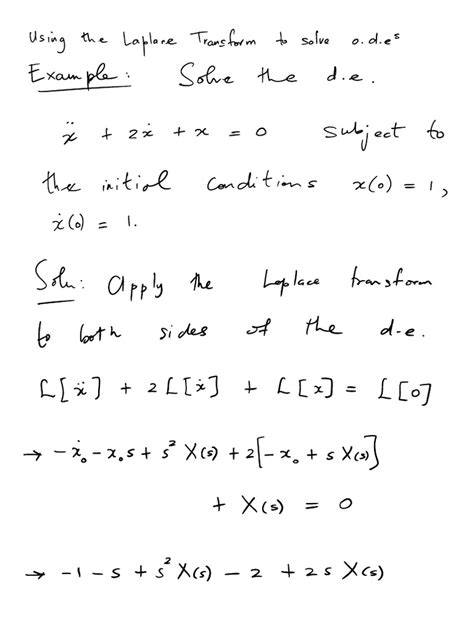 Using the Laplace Transform to solve o.d.es
Example: Solve the d.e.
ẍ + 2ẋ + x = 0 subject to
the initial conditions x(0) = 1,
ẋ(0) = 1.
Soln: Apply the Laplace transform
to both sides of the d.e.
L[ẍ] + 2L[ẋ] + L[x] = L[0]
→ -ẋ₀ - x₀s + s² X(s) + 2[-x₀ + s X(s)]
+ X(s) = 0
→ -1 - s + s² X(s) - 2 + 2s X(s)